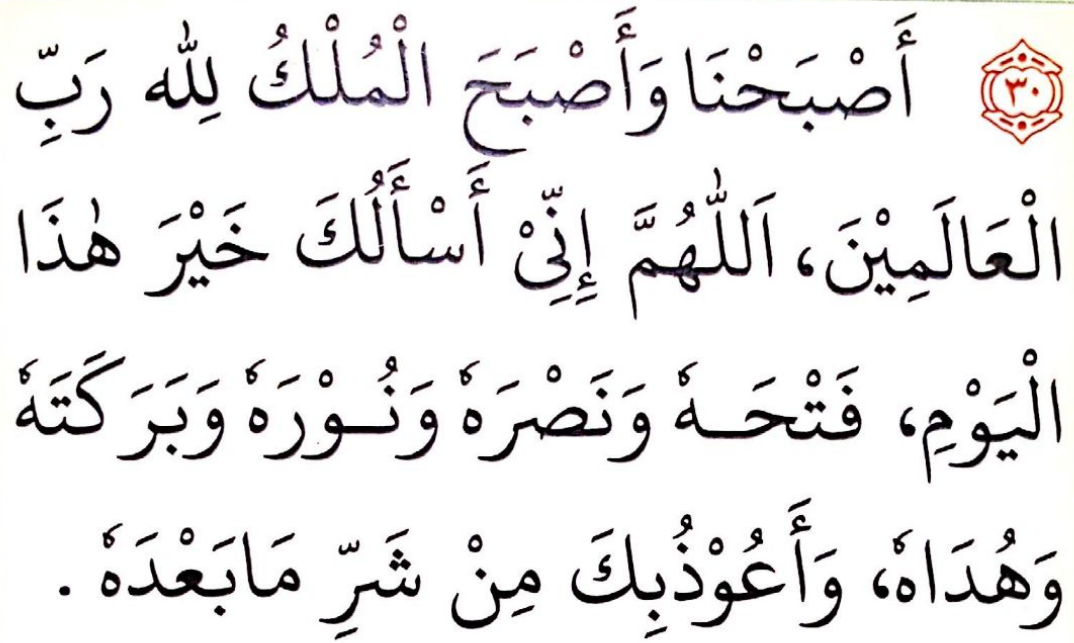 ٣٠ أَصْبَحْنَا وَأَصْبَحَ الْمُلْكُ لِلّٰه رَبِّ
الْعَالَمِيْنَ، اَللّٰهُمَّ إِنِّيْ أَسْأَلُكَ خَيْرَ هٰذَا
الْيَوْمِ، فَتْحَهٗ وَنَصْرَهٗ وَنُوْرَهٗ وَبَرَكَتَهٗ
وَهُدَاهٗ، وَأَعُوْذُبِكَ مِنْ شَرِّ مَابَعْدَهٗ .